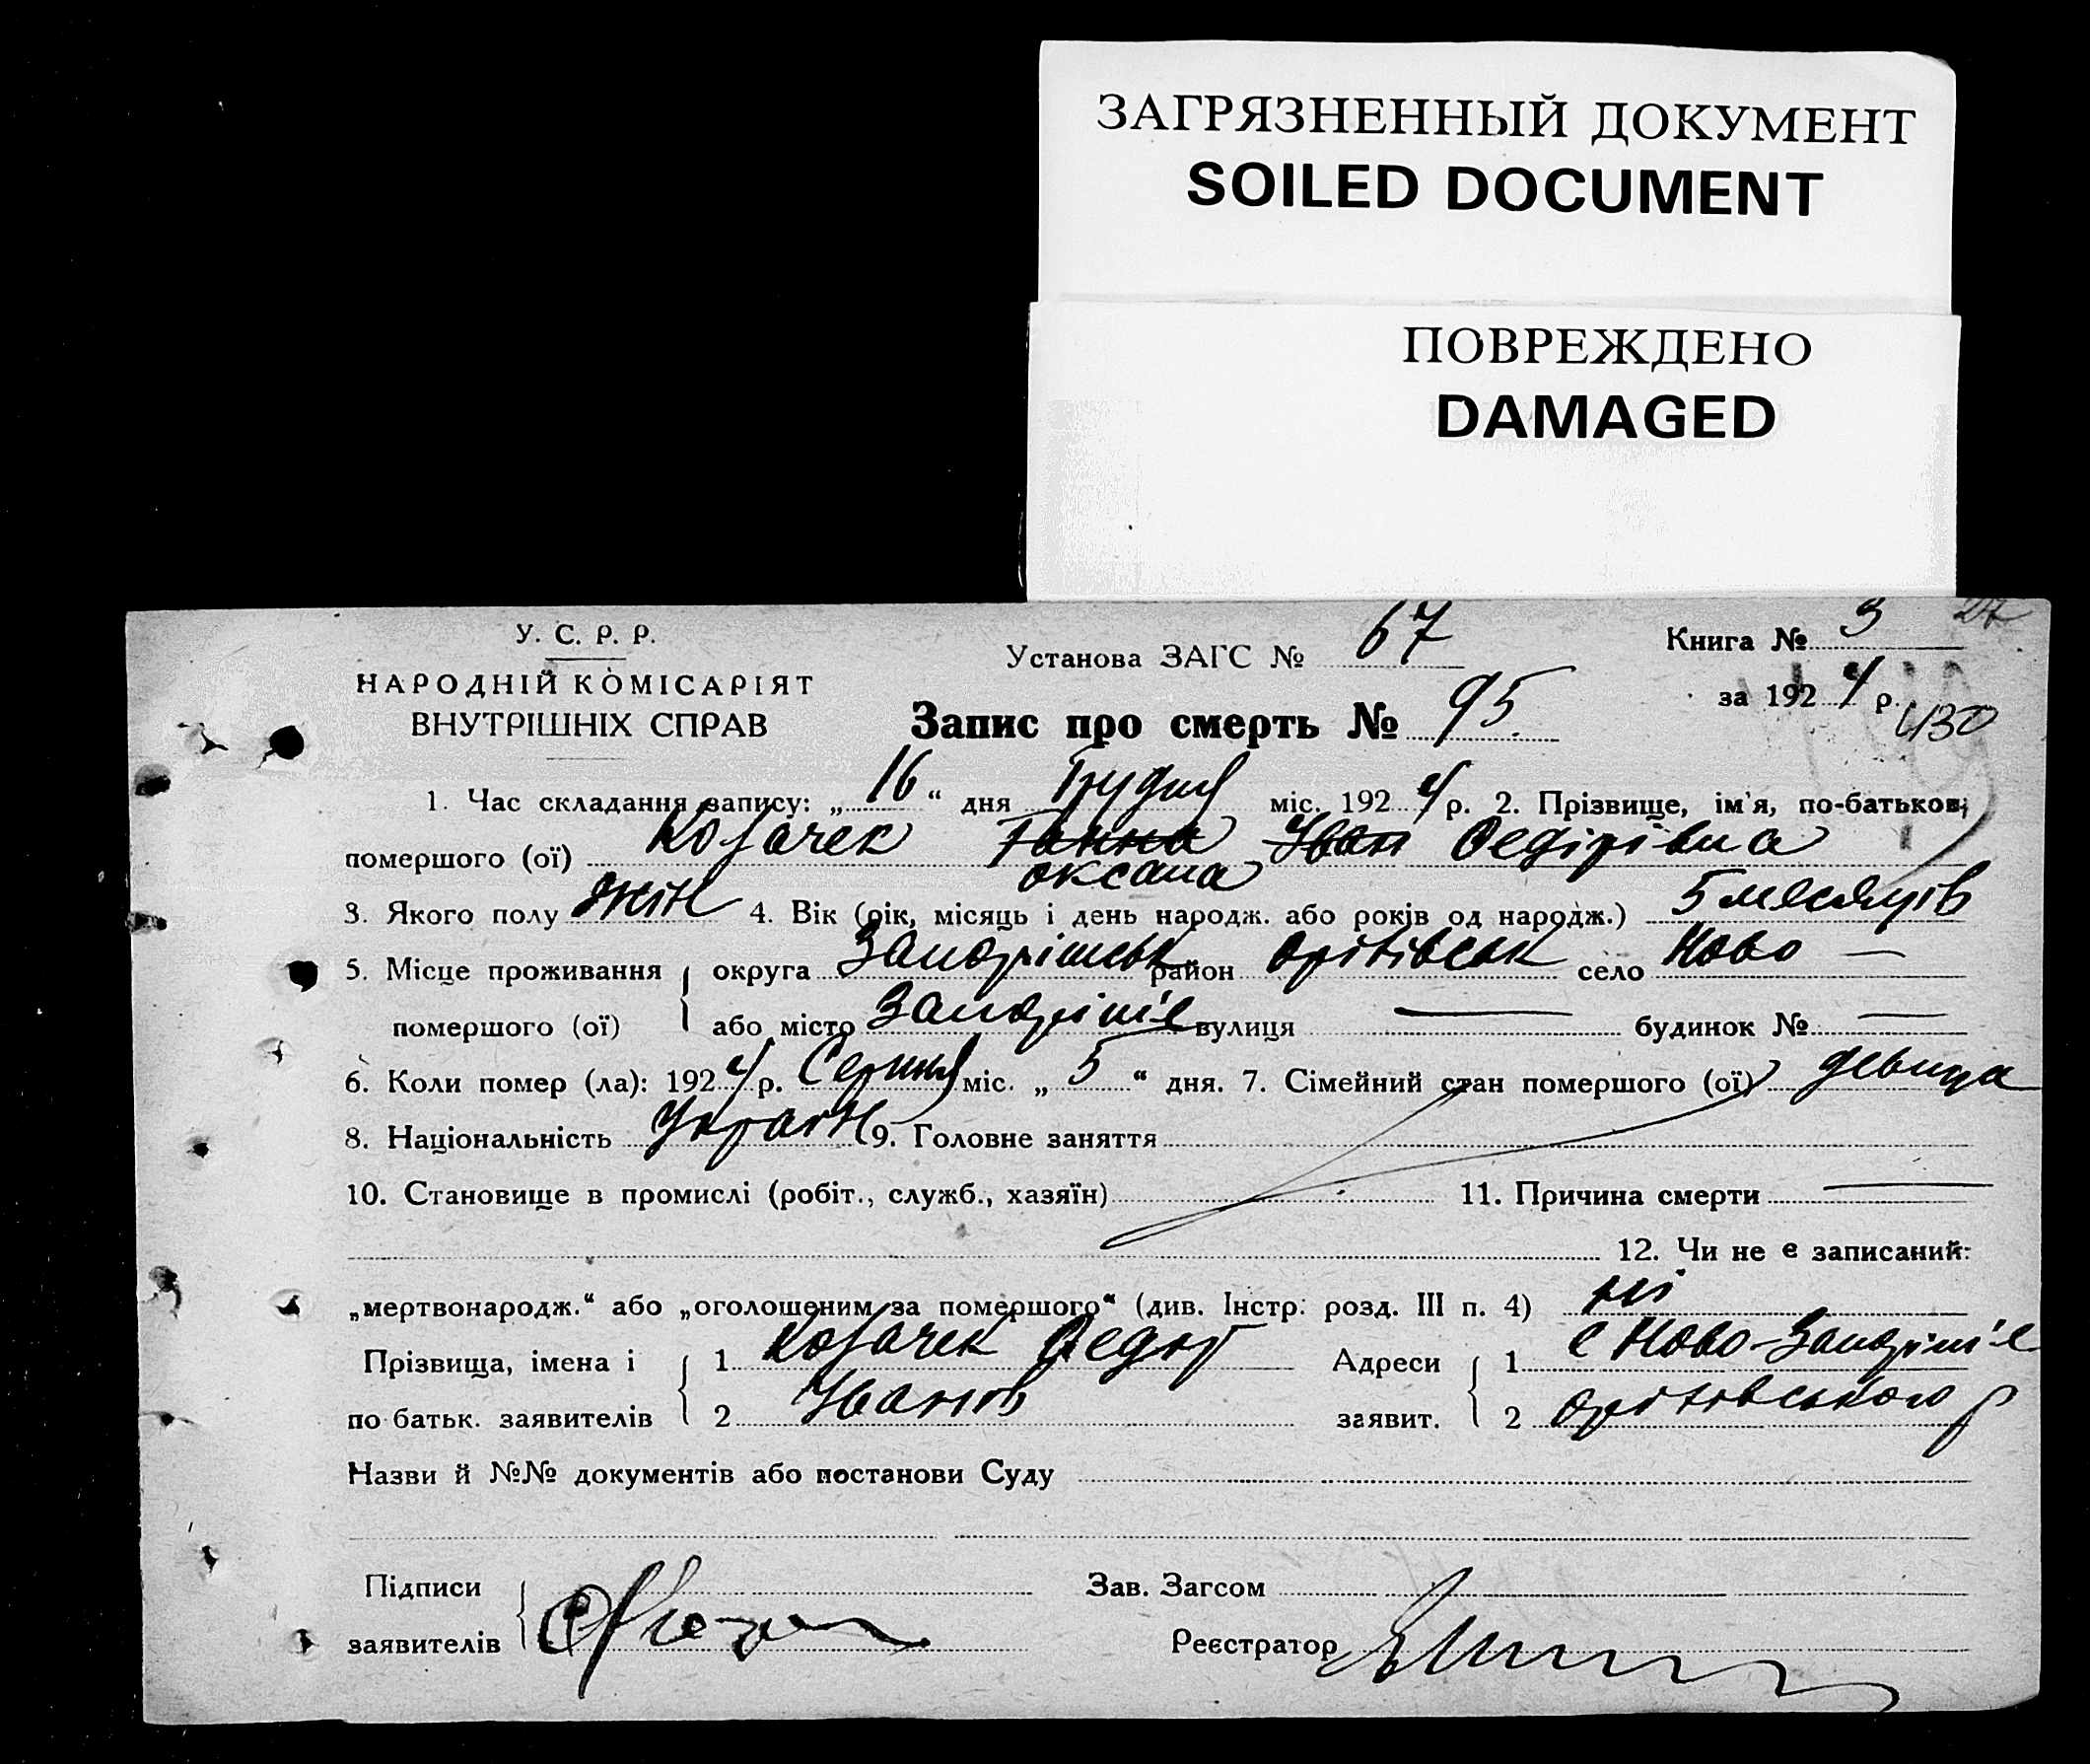 ЗАГРЯЗНЕННЫЙ ДОКУМЕНТ
SOILED DOCUMENT
ПОВРЕЖДЕНО
DAMAGED
У. С. Р. Р.
НАРОДНІЙ КОМІСАРІЯТ
ВНУТРІШНІХ СПРАВ
Установа ЗАГС № 67
Книга № 3
за 1924 р.
430
Запис про смерть № 95
1. Час складання запису: „16“ дня Грудня міс. 1924 р. 2. Прізвище, ім'я, по-батькові
помершого (ої) Козачек Ганна Іван Федірівна
оксана
3. Якого полу жін 4. Вік (рік, місяць і день народж. або років од народж.) 5 месяців
5. Місце проживання округа Запоріжськ район Оріхівськ село Ново —
помершого (ої) або місто Запоріжіє вулиця — будинок № —
6. Коли помер (ла): 1924 р. Серпня міс. „5“ дня. 7. Сімейний стан помершого (ої) девица
8. Національність Україн 9. Головне заняття
10. Становище в промислі (робіт., служб., хазяїн) 11. Причина смерти —
12. Чи не є записаний:
„мертвонародж.“ або „оголошеним за помершого“ (див. Інстр. розд. III п. 4) ні
Прізвища, імена і 1 Козачек Федор Адреси 1 с Ново-Запоріжіє
по батьк. заявителів 2 Іванов заявит. 2 Оріхівського р
Назви й №№ документів або постанови Суду
Підписи Зав. Загсом
заявителів Реєстратор